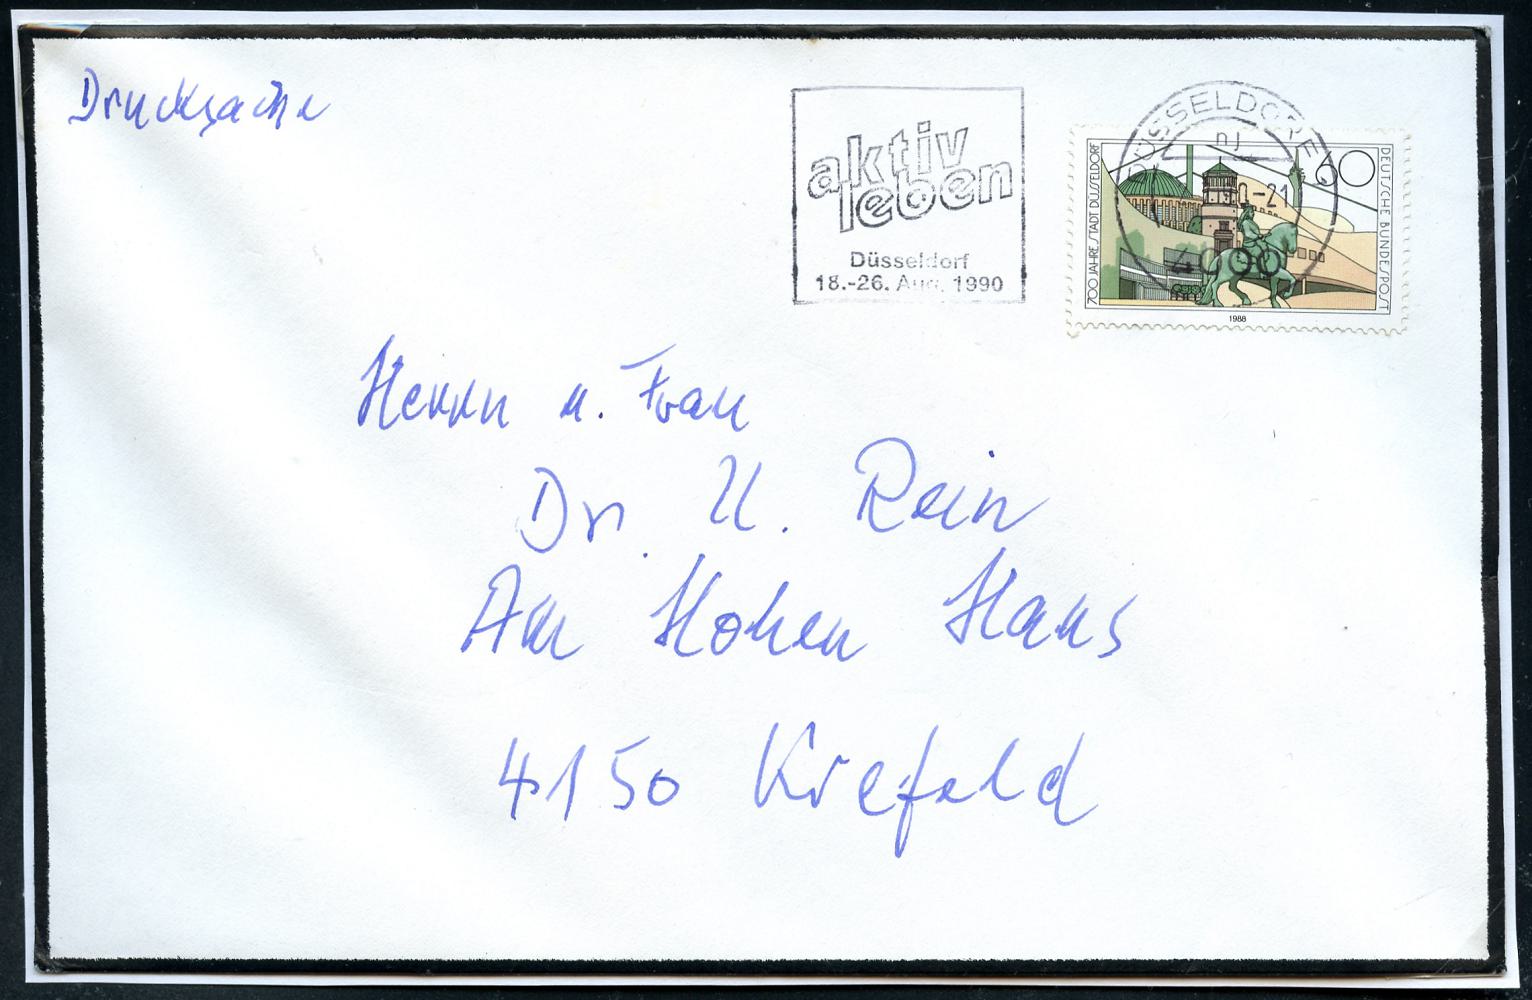 Drucksache
aktiv
leben
Düsseldorf
18.-26. Aug. 1990
DÜSSELDORF
nj
-21
4000
700 JAHRE STADT DÜSSELDORF
60
DEUTSCHE BUNDESPOST
1988
Herrn u. Frau
Dr. U. Rein
Am Hohen Haus
4150 Krefeld